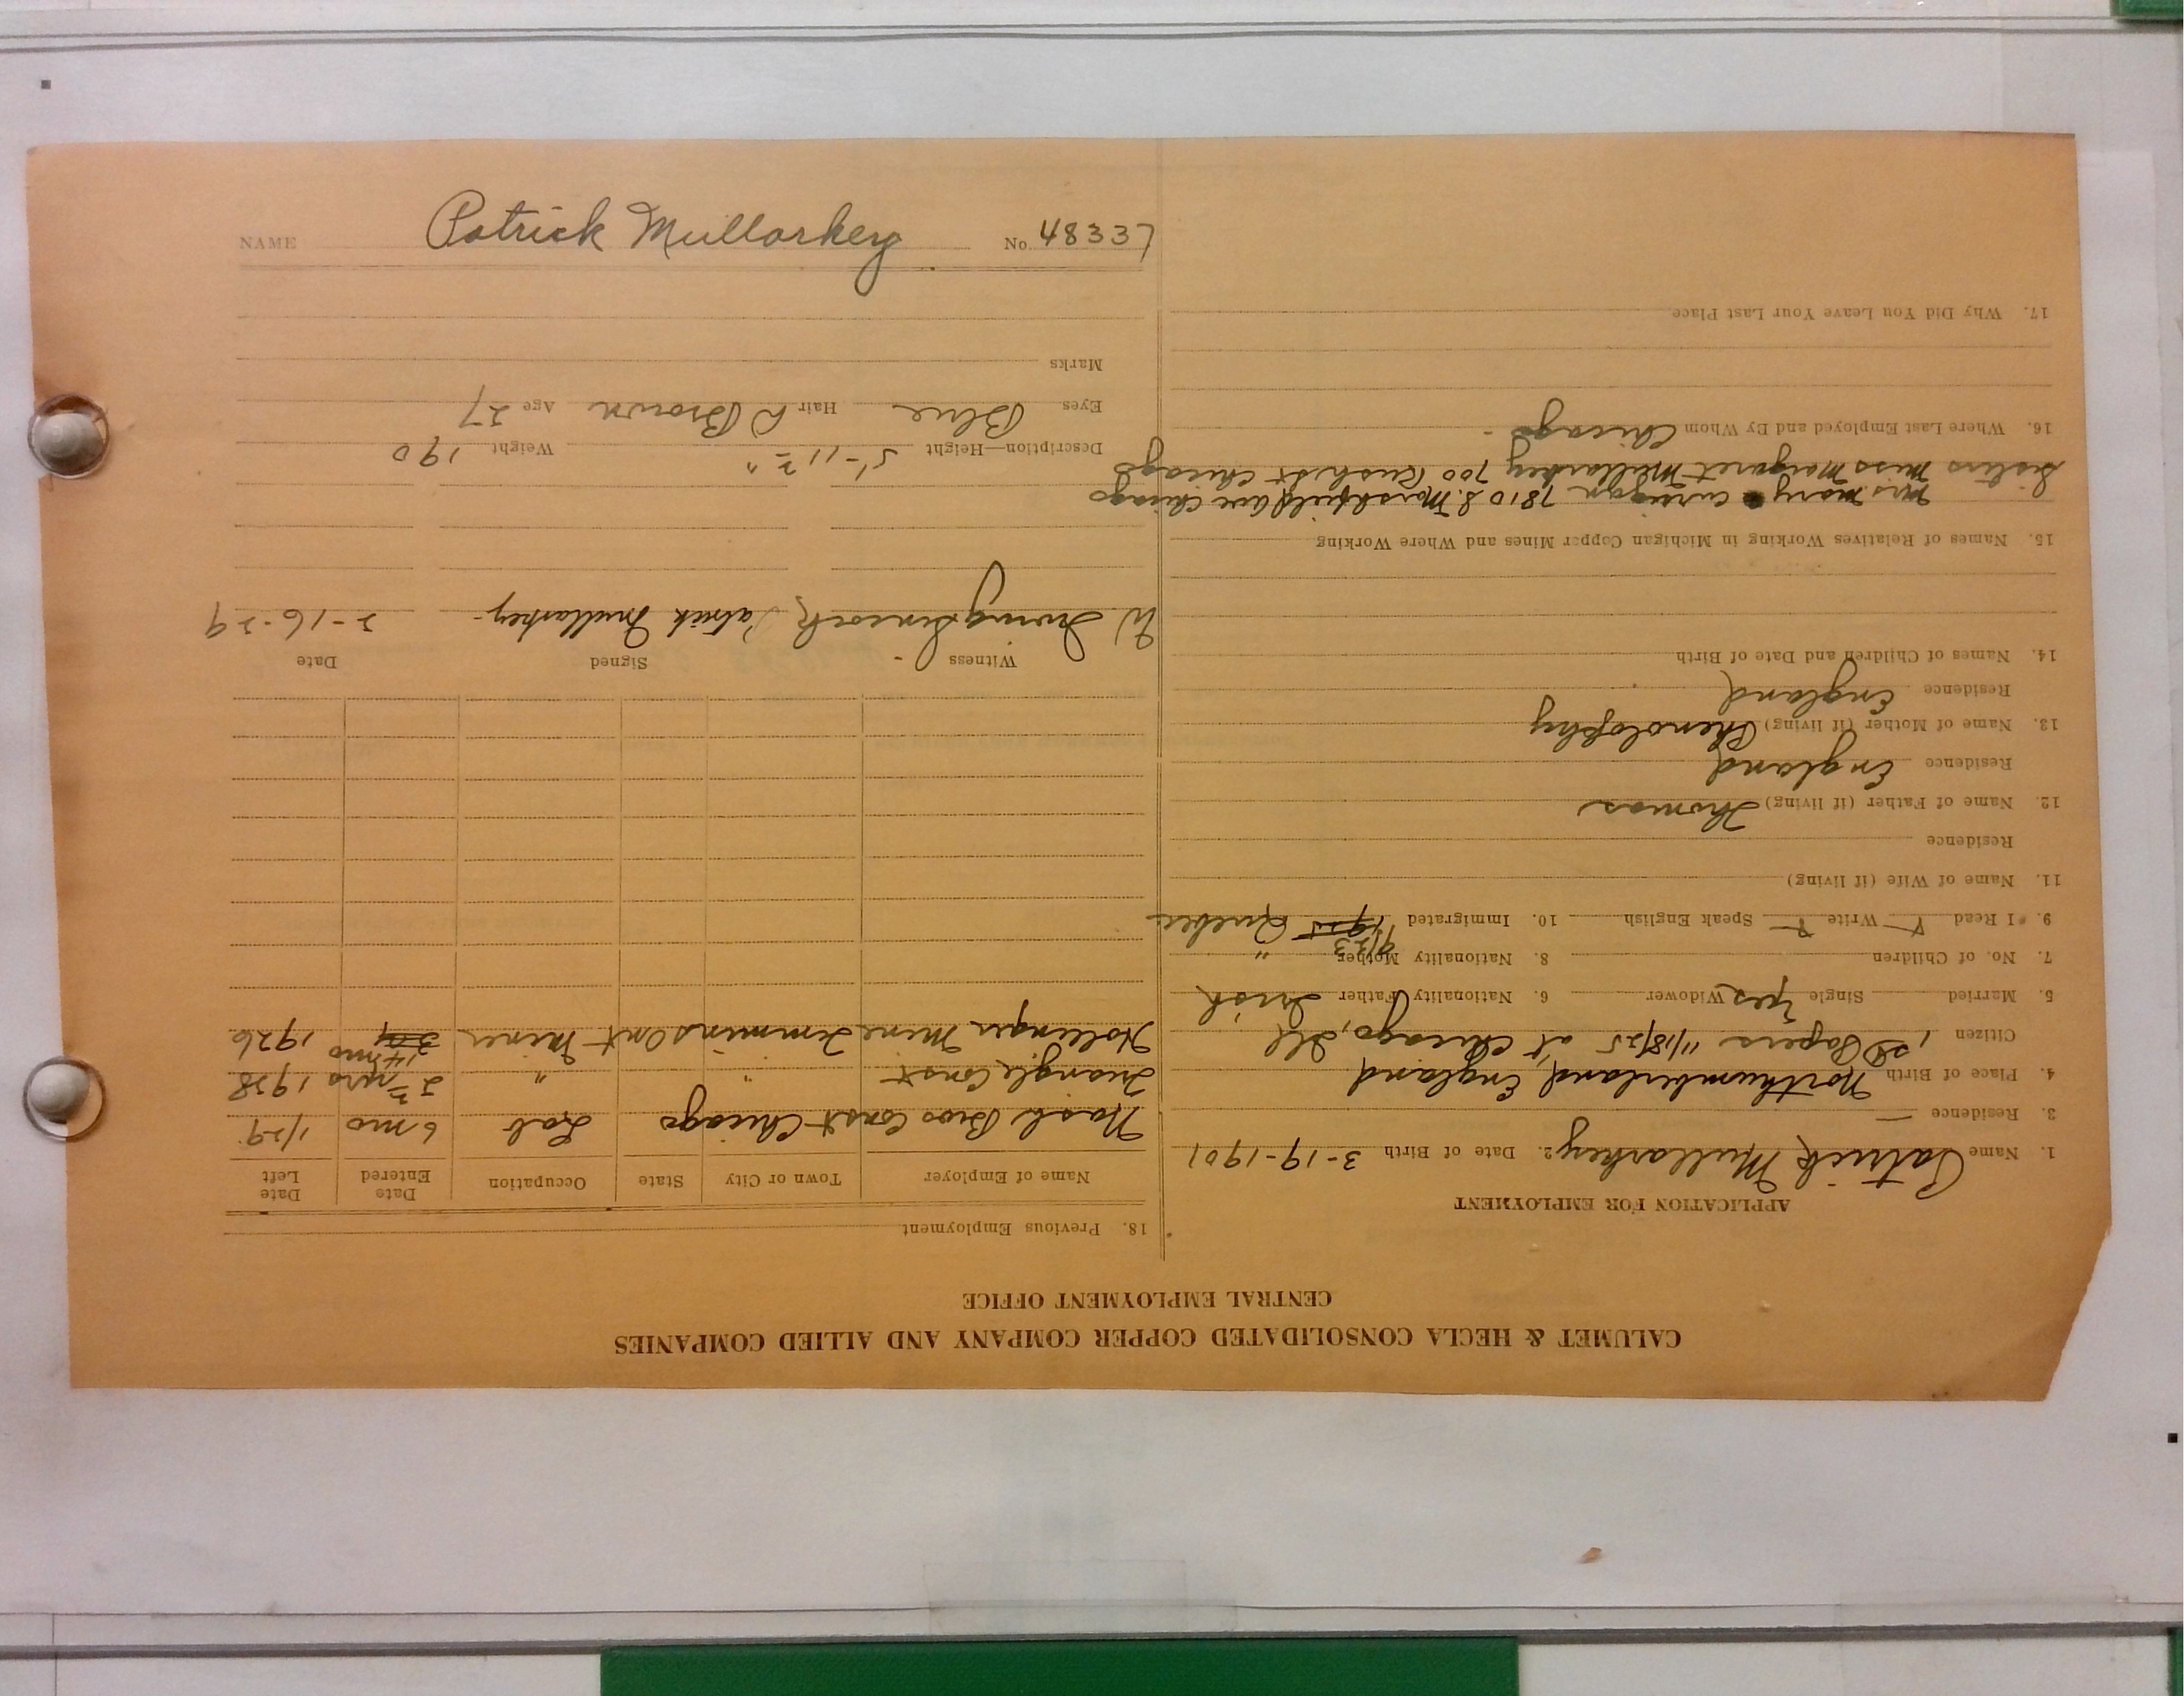 CALUMET & HECLA CONSOLIDATED COPPER COMPANY AND ALLIED COMPANIES
CENTRAL EMPLOYMENT OFFICE
APPLICATION FOR EMPLOYMENT
1. Name Patrick Mullarkey 2. Date of Birth 3-19-1901
3. Residence —
4. Place of Birth Northumberland, England
Citizen 1st Papers 11/18/25 at Chicago, Ill
5. Married Single Yes Widower 6. Nationality Father Irish
7. No. of Children 8. Nationality Mother "
9/23
9. I Read Y Write Y Speak English 10. Immigrated 1925 Quebec
11. Name of Wife (if living)
Residence
12. Name of Father (if living) Thomas
Residence England
13. Name of Mother (if living)
Residence England
14. Names of Children and Date of Birth
15. Names of Relatives Working in Michigan Copper Mines and Where Working
Mrs Mary 7810 S. Marshfield ave Chicago
Sisters Miss Margaret Mullarkey 700 Rush st Chicago
16. Where Last Employed and By Whom Chicago -
17. Why Did You Leave Your Last Place
18. Previous Employment
Name of Employer Town or City State Occupation Date Entered Date Left
Nash Bros Const Chicago Lab 6 mo 1/29
Triangle Const " " 2 yrs 1928
14 mo
Hollinger Mine Timmins Ont Miner 1926
Witness Signed Date
W. Irving Patrick Mullarkey - 2-16-29
Description—Height 5'-11½" Weight 190
Eyes Blue Hair D Brown Age 27
Marks
NAME Patrick Mullarkey No. 48337